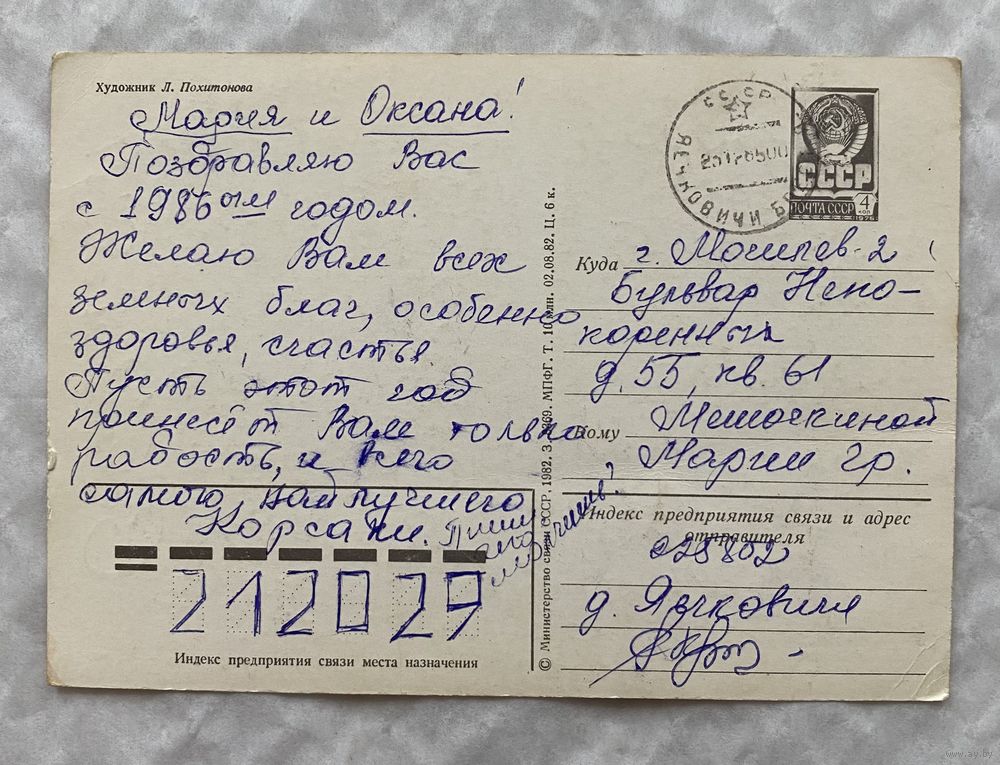 Художник Л. Похитонова
Мария и Оксана!
Поздравляю Вас
с 1986ым годом.
Желаю Вам всех
земных благ, особенно
здоровья, счастья
Пусть этот год
принесёт Вам только
радость, и всего
самого наилучшего
Корсаки. Пиши
чего
молчишь?
212029
Индекс предприятия связи места назначения
© Министерство связи СССР, 1982. З. 369. МПФГ. Т. 10 млн. 02.08.82. Ц. 6 к.
СССР
ЯЕЧКОВИЧИ
СССР
ПОЧТА СССР
4
коп
1976
Куда г. Могилев-2
Бульвар Непо-
коренных
д. 55, кв. 61
Кому Мешочкиной
Марии Гр.
Индекс предприятия связи и адрес
отправителя
225802
д. Яечковичи
www.ay.by